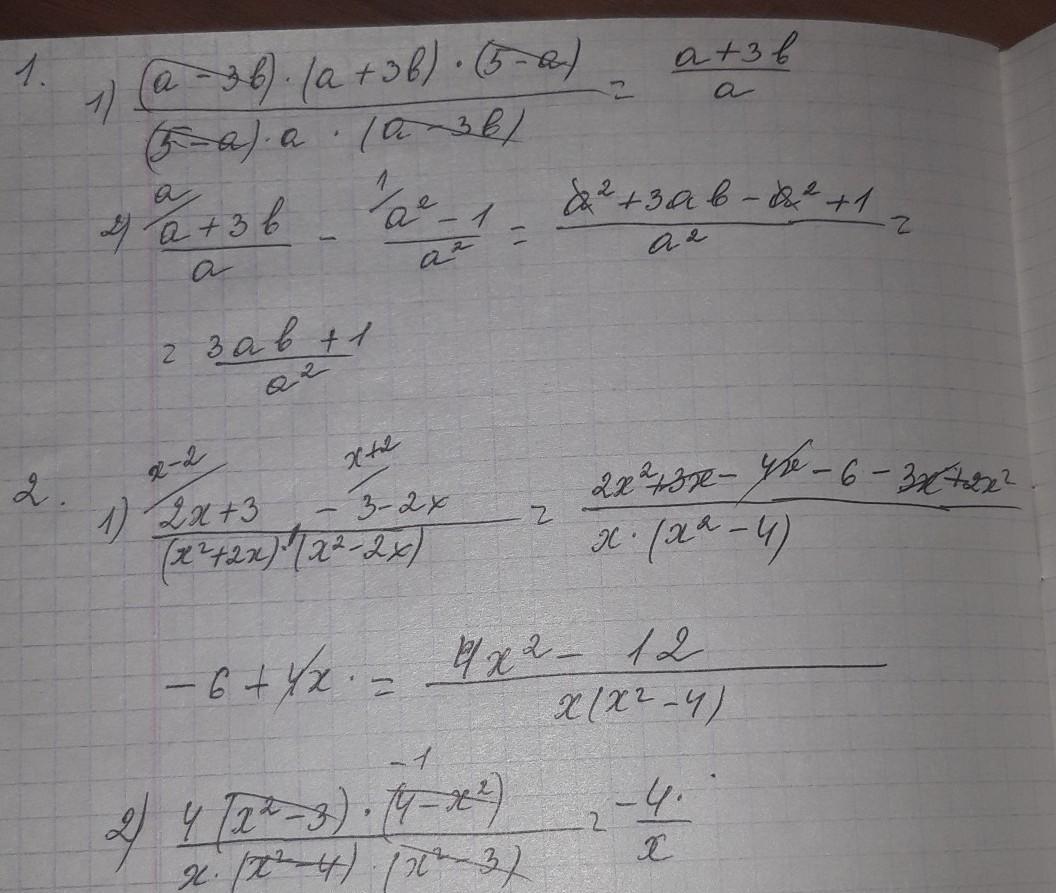 1. 1) ((a-3b)·(a+3b)·(5-a))/((5-a)·a·(a-3b)) = (a+3b)/a
2) a/ (a+3b)/a - 1/ (a²-1)/a² = (a²+3ab-a²+1)/a² =
= (3ab+1)/a²
2. 1) (x-2/ 2x+3 - x+2/ 3-2x)/((x²+2x)·(x²-2x)) = (2x²+3x-4x-6-3x+2x²)/(x·(x²-4))
-6+4x· = (4x²-12)/(x(x²-4))
2) (4(x²-3)·(4-x²) -1)/(x·(x²-4)·(x²-3)) = (-4·)/x